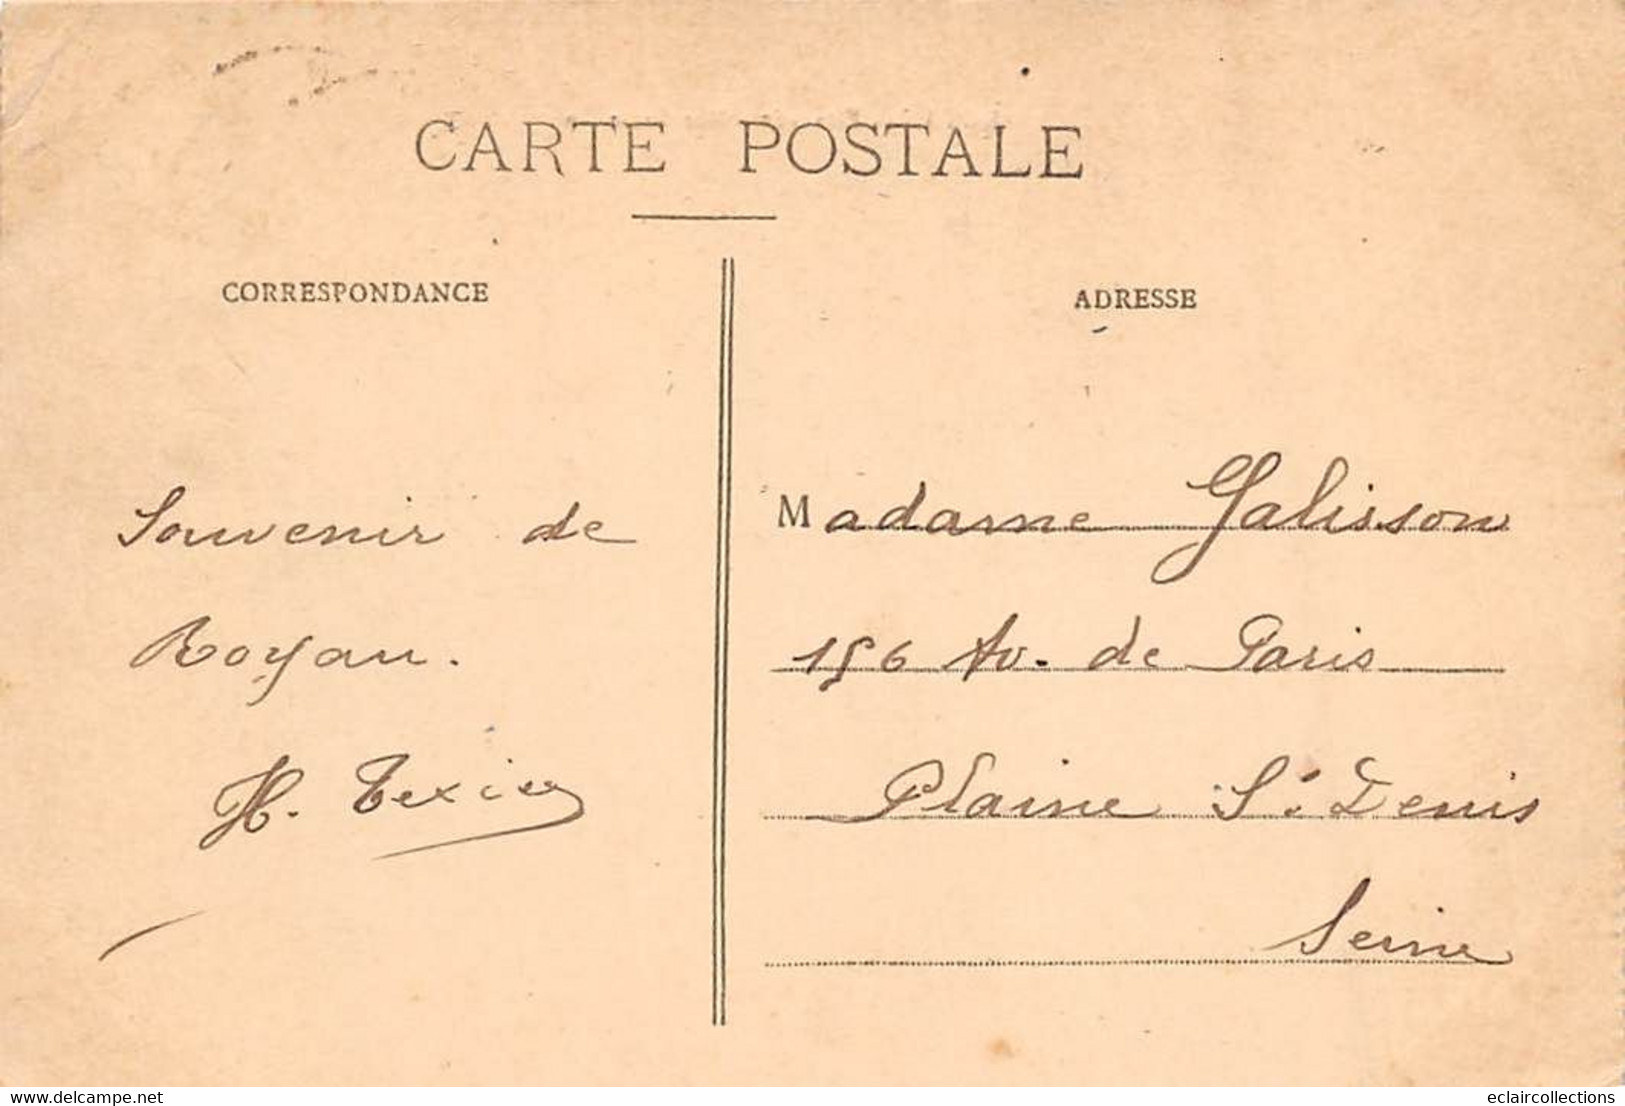 CARTE POSTALE
CORRESPONDANCE
ADRESSE
Souvenir de
Royan.
H. Texier
Madame Galisson
156 Av. de Paris
Plaine St. Denis
Seine
delcampe.net
eclaircollections